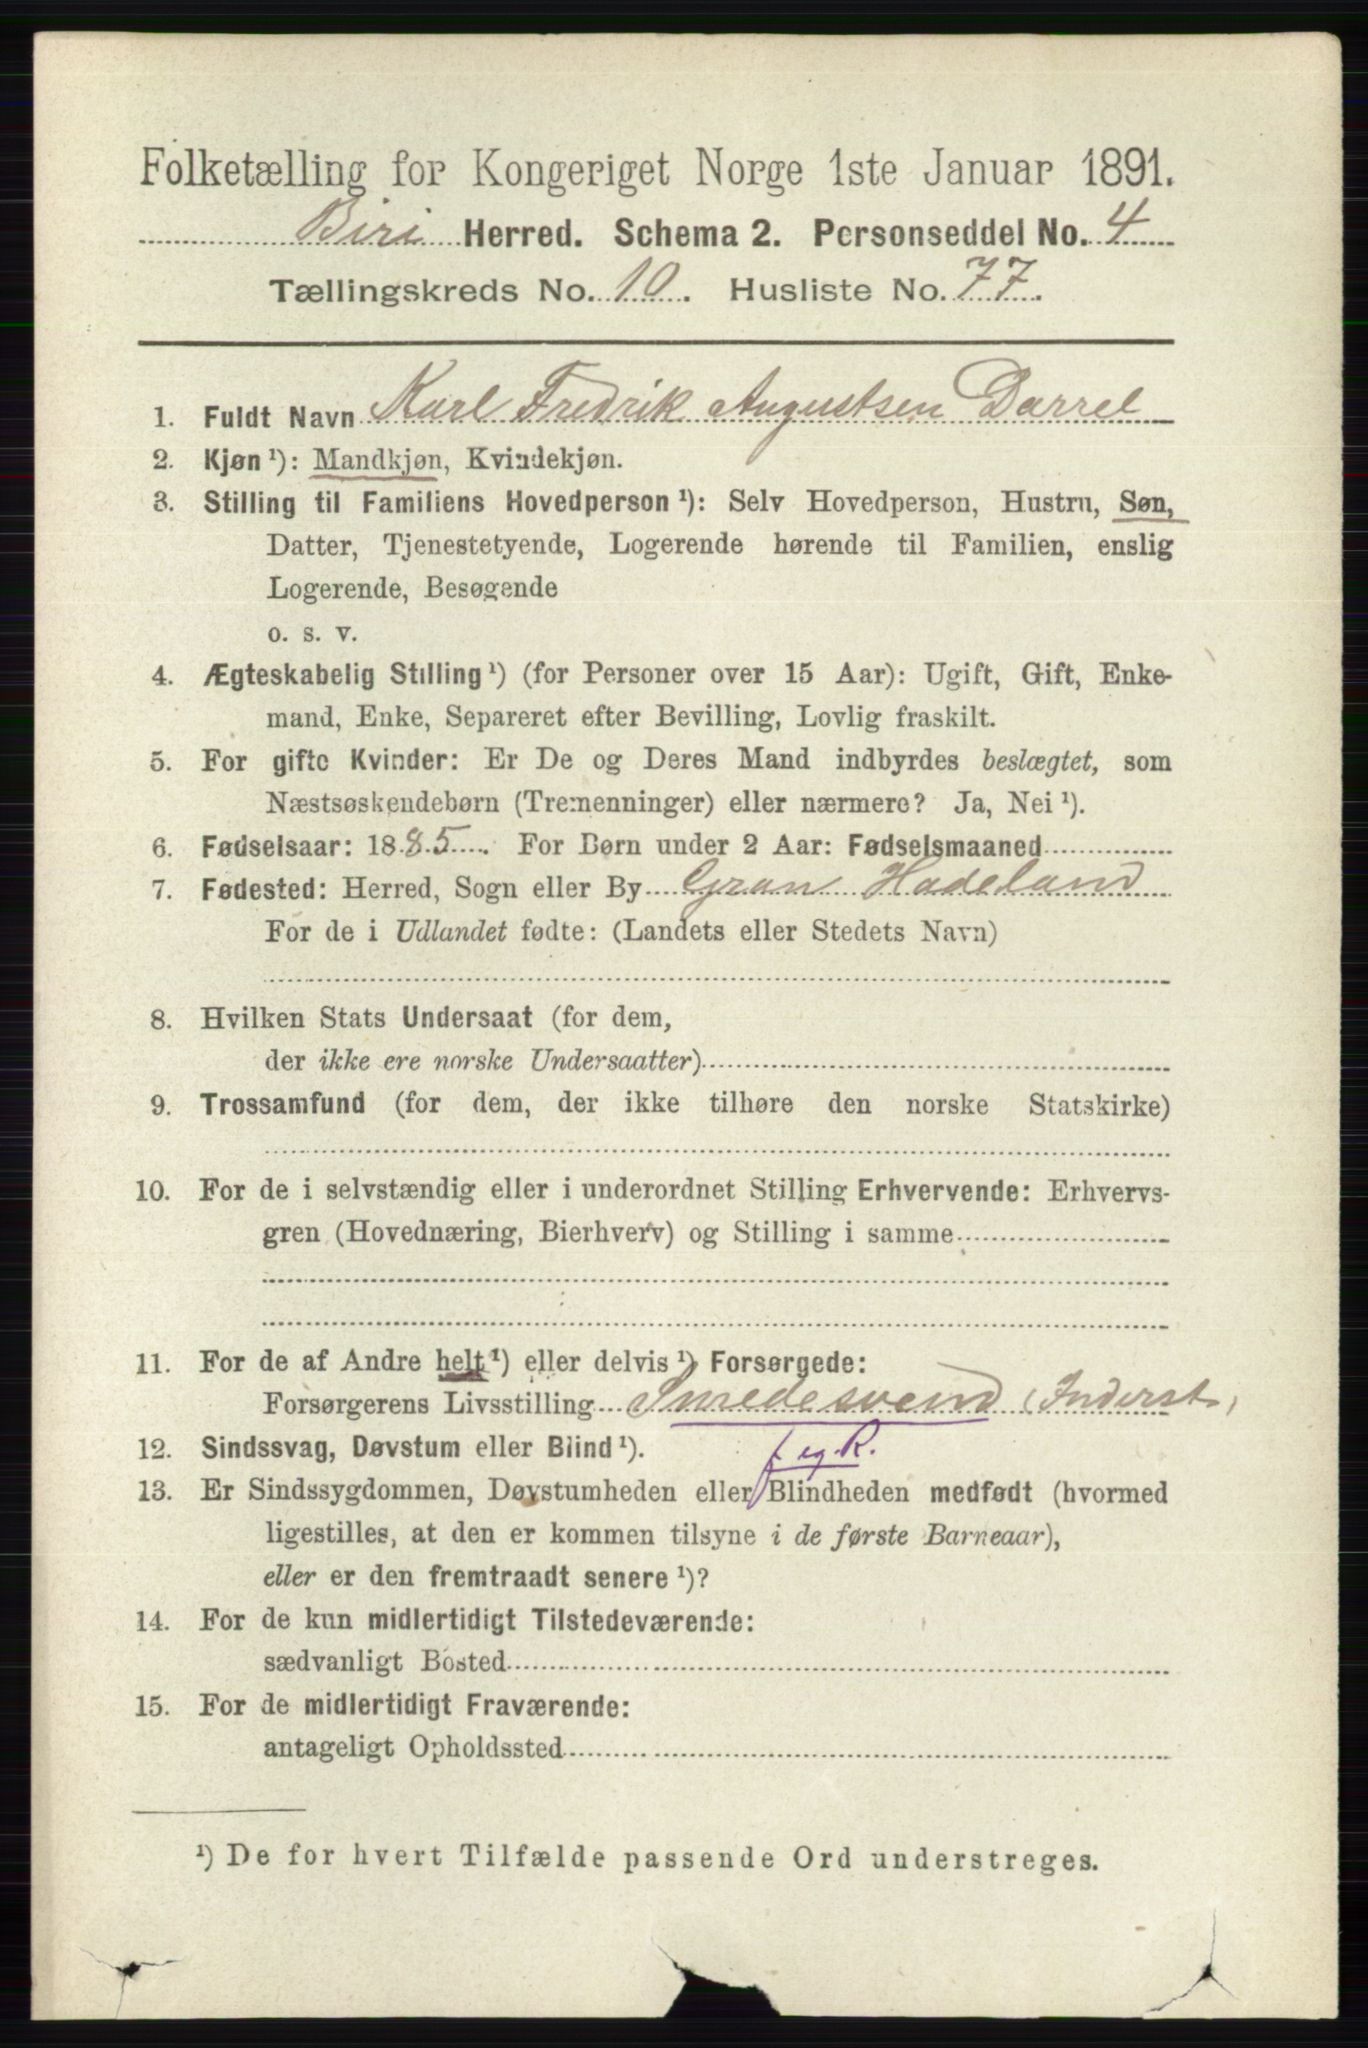 Folketælling for Kongeriget Norge 1ste Januar 1891.
Biri Herred. Schema 2. Personseddel No. 4
Tællingskreds No. 10. Husliste No. 77.
1. Fuldt Navn Karl Fredrik Augustsen Darrel
2. Kjøn ¹): Mandkjøn, Kvindekjøn.
3. Stilling til Familiens Hovedperson ¹): Selv Hovedperson, Hustru, Søn,
Datter, Tjenestetyende, Logerende hørende til Familien, enslig
Logerende, Besøgende
o. s. v.
4. Ægteskabelig Stilling ¹) (for Personer over 15 Aar): Ugift, Gift, Enke-
mand, Enke, Separeret efter Bevilling, Lovlig fraskilt.
5. For gifte Kvinder: Er De og Deres Mand indbyrdes beslægtet, som
Næstsøskendebørn (Tremenninger) eller nærmere? Ja, Nei ¹).
6. Fødselsaar: 1885. For Børn under 2 Aar: Fødselsmaaned
7. Fødested: Herred, Sogn eller By Gran Hadeland
For de i Udlandet fødte: (Landets eller Stedets Navn)
8. Hvilken Stats Undersaat (for dem,
der ikke ere norske Undersaatter)
9. Trossamfund (for dem, der ikke tilhøre den norske Statskirke)
10. For de i selvstændig eller i underordnet Stilling Erhvervende: Erhvervs-
gren (Hovednæring, Bierhverv) og Stilling i samme
11. For de af Andre helt ¹) eller delvis ¹) Forsørgede:
Forsørgerens Livsstilling Smedesvend (Inderst)
12. Sindssvag, Døvstum eller Blind ¹).
13. Er Sindssygdommen, Døvstumheden eller Blindheden medfødt (hvormed
ligestilles, at den er kommen tilsyne i de første Barneaar),
eller er den fremtraadt senere ¹)?
14. For de kun midlertidigt Tilstedeværende:
sædvanligt Bosted
15. For de midlertidigt Fraværende:
antageligt Opholdssted
¹) De for hvert Tilfælde passende Ord understreges.